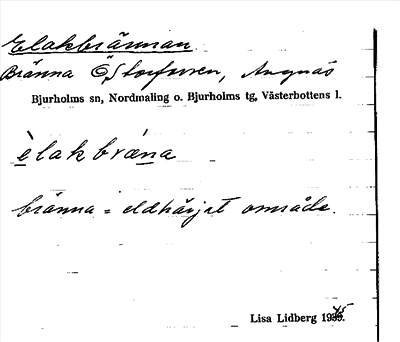 Elakbrännan
Bränna Ö Storfuren, Angnäs
Bjurholms sn, Nordmaling o. Bjurholms tg, Västerbottens l.
èlakbræna
bränna = eldhärjat område.
Lisa Lidberg 1935.